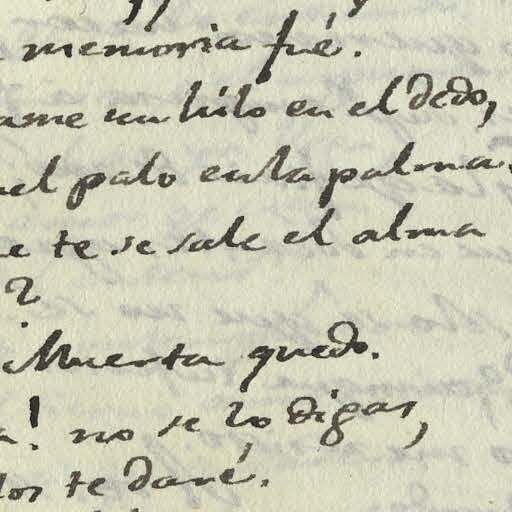 memoria fué.
ame un hilo en el dedo,
el palo en la palma.
e te se sale el alma
?
Muerta quedo.
a! no se lo digas,
los te daré.